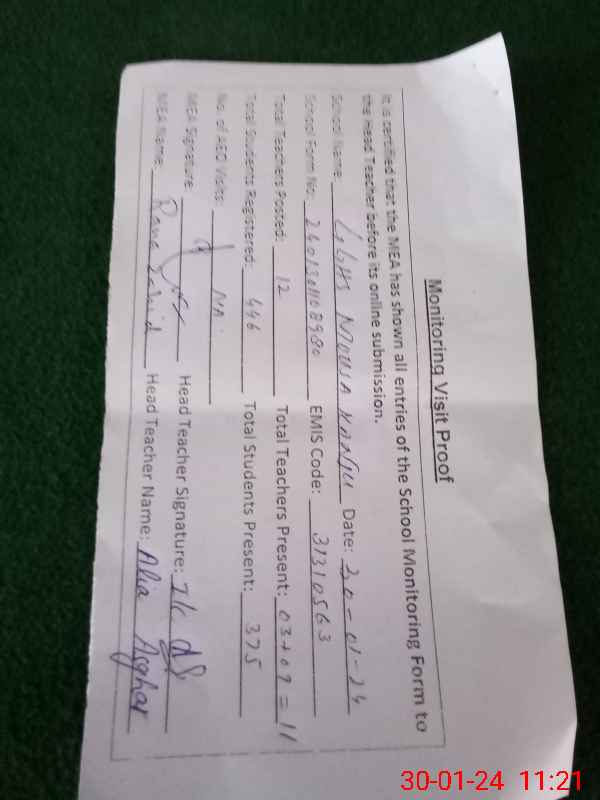 Monitoring Visit Proof
It is certified that the MEA has shown all entries of the School Monitoring Form to
the Head Teacher before its online submission.
School Name: GGHS MOUSA Date: 30-01-24
School Form No: EMIS Code: 31310563
Total Teachers Posted: 12 Total Teachers Present: = 11
Total Students Registered: 446 Total Students Present: 375
No. of AEO Visits: NA
MEA Signature: Head Teacher Signature:
MEA Name: Rana Head Teacher Name: Alia Asghar
30-01-24 11:21